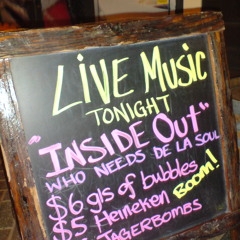 LIVE MUSIC
TONIGHT
"INSIDE OUT"
WHO NEEDS DE LA SOUL
$6 gls of bubbles
$5 Heineken BOOM!
JAGERBOMBS